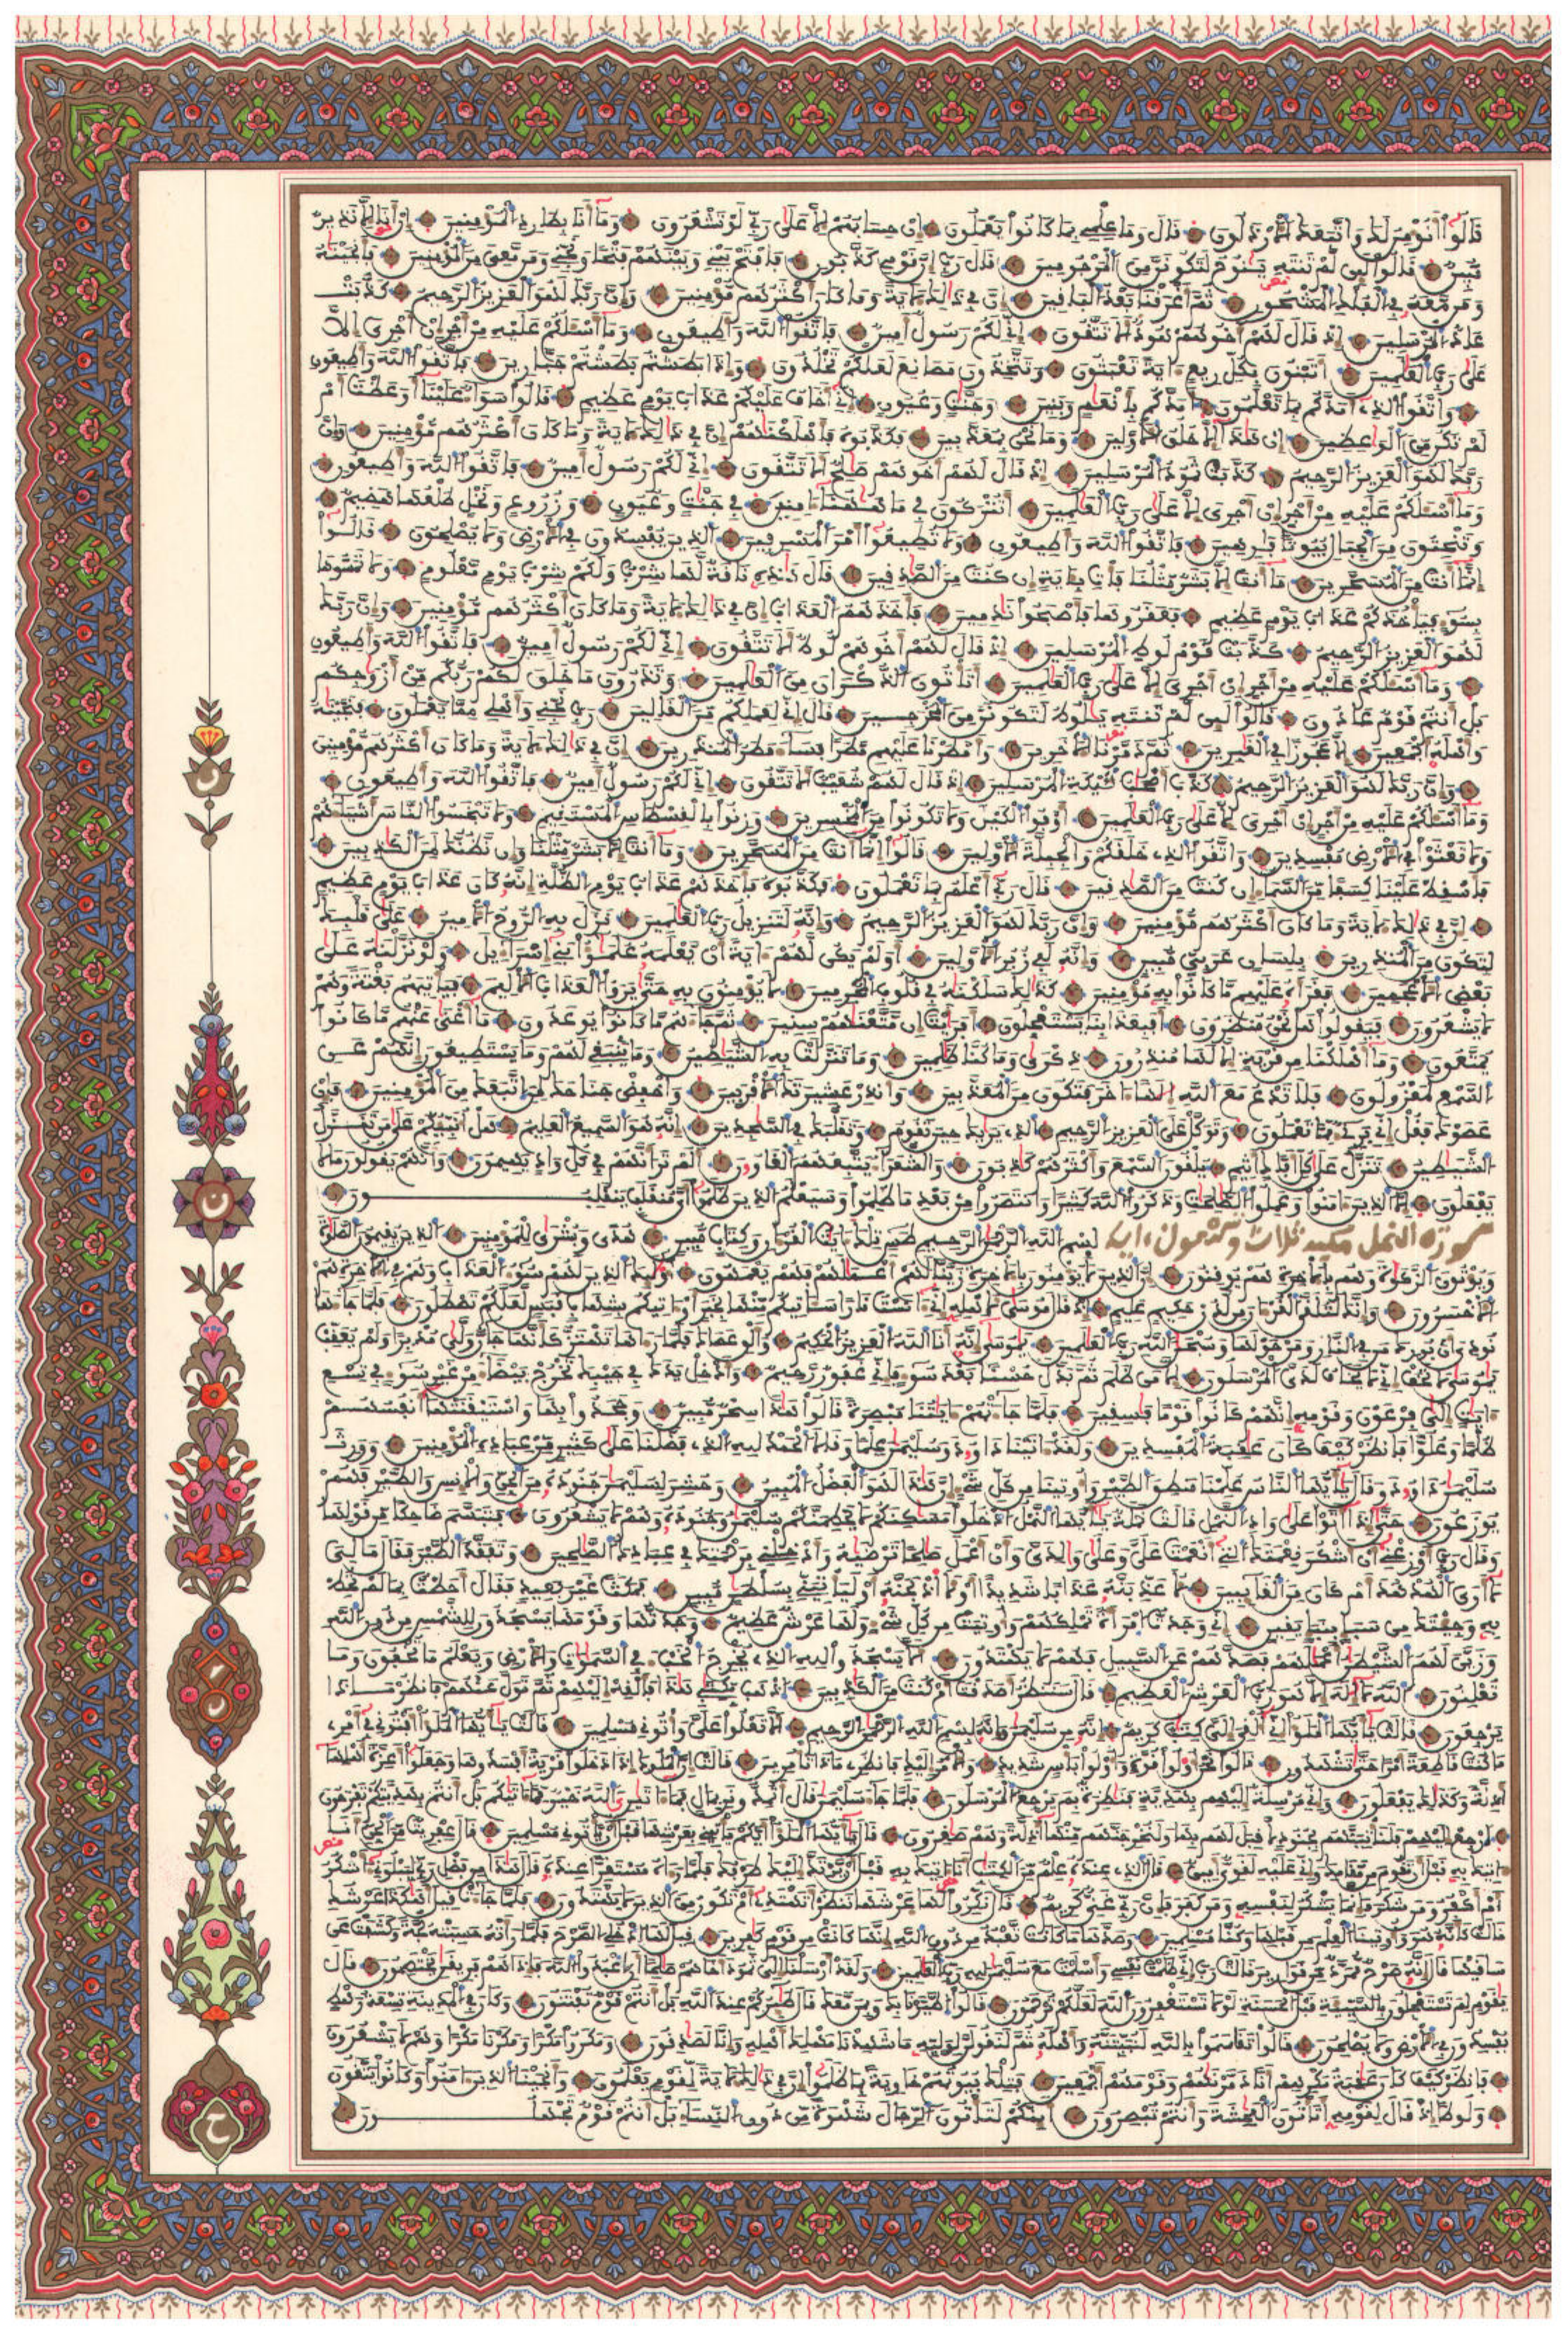 قالوا أنومن لك واتبعك الارذلون قال وما علمي بما كانوا يعملون ان حسابهم الا على ربي لو تشعرون وما أنا بطارد المومنين ان انا الا نذير
مبين قالوا لئن لم تنته ينوح لتكونن من المرجومين قال رب ان قومي كذبون فافتح بيني وبينهم فتحا ونجني ومن معي من المومنين فأنجينه
ومن معه في الفلك المشحون ثم أغرقنا بعد الباقين ان في ذلك لاية وما كان أكثرهم مومنين وان ربك لهو العزيز الرحيم كذبت
عاد المرسلين اذ قال لهم أخوهم هود الا تتقون اني لكم رسول امين فاتقوا الله وأطيعون وما أسئلكم عليه من اجر ان اجري الا
على رب العلمين أتبنون بكل ريع اية تعبثون وتتخذون مصانع لعلكم تخلدون واذا بطشتم بطشتم جبارين فاتقوا الله وأطيعون
واتقوا الذي أمدكم بما تعلمون أمدكم بأنعم وبنين وجنت وعيون اني أخاف عليكم عذاب يوم عظيم قالوا سواء علينا أوعظت أم
لم تكن من الوعظين ان هذا الا خلق الاولين وما نحن بمعذبين فكذبوه فأهلكنهم ان في ذلك لاية وما كان أكثرهم مومنين وان
ربك لهو العزيز الرحيم كذبت ثمود المرسلين اذ قال لهم أخوهم صلح الا تتقون اني لكم رسول امين فاتقوا الله وأطيعون
وما أسئلكم عليه من اجر ان اجري الا على رب العلمين أتتركون في ما ههنا ءامنين في جنت وعيون وزروع ونخل طلعها هضيم
وتنحتون من الجبال بيوتا فرهين فاتقوا الله وأطيعون ولا تطيعوا أمر المسرفين الذين يفسدون في الارض ولا يصلحون قالوا
انما أنت من المسحرين ما أنت الا بشر مثلنا فات بئاية ان كنت من الصدقين قال هذه ناقة لها شرب ولكم شرب يوم معلوم ولا تمسوها
بسوء فياخذكم عذاب يوم عظيم فعقروها فأصبحوا ندمين فأخذهم العذاب ان في ذلك لاية وما كان أكثرهم مومنين وان ربك
لهو العزيز الرحيم كذبت قوم لوط المرسلين اذ قال لهم أخوهم لوط الا تتقون اني لكم رسول امين فاتقوا الله وأطيعون
وما أسئلكم عليه من اجر ان اجري الا على رب العلمين أتاتون الذكران من العلمين وتذرون ما خلق لكم ربكم من أزوجكم
بل أنتم قوم عادون قالوا لئن لم تنته يلوط لتكونن من المخرجين قال اني لعملكم من القالين رب نجني وأهلي مما يعملون فنجينه
وأهله أجمعين الا عجوزا في الغبرين ثم دمرنا الاخرين وأمطرنا عليهم مطرا فساء مطر المنذرين ان في ذلك لاية وما كان أكثرهم مومنين
وان ربك لهو العزيز الرحيم كذب أصحب ليكة المرسلين اذ قال لهم شعيب الا تتقون اني لكم رسول امين فاتقوا الله وأطيعون
وما أسئلكم عليه من اجر ان اجري الا على رب العلمين أوفوا الكيل ولا تكونوا من المخسرين وزنوا بالقسطاس المستقيم ولا تبخسوا الناس أشياءهم
ولا تعثوا في الارض مفسدين واتقوا الذي خلقكم والجبلة الاولين قالوا انما أنت من المسحرين وما أنت الا بشر مثلنا وان نظنك لمن الكذبين
فأسقط علينا كسفا من السماء ان كنت من الصدقين قال ربي أعلم بما تعملون فكذبوه فأخذهم عذاب يوم الظلة انه كان عذاب يوم عظيم
ان في ذلك لاية وما كان أكثرهم مومنين وان ربك لهو العزيز الرحيم وانه لتنزيل رب العلمين نزل به الروح الامين على قلبك
لتكون من المنذرين بلسان عربي مبين وانه لفي زبر الاولين أولم يكن لهم ءاية أن يعلمه علمؤا بني اسراءيل ولو نزلنه على
بعض الاعجمين فقرأه عليهم ما كانوا به مومنين كذلك سلكنه في قلوب المجرمين لا يومنون به حتى يروا العذاب الاليم فياتيهم بغتة وهم
لا يشعرون فيقولوا هل نحن منظرون أفبعذابنا يستعجلون أفرءيت ان متعنهم سنين ثم جاءهم ما كانوا يوعدون ما أغنى عنهم ما كانوا
يمتعون وما أهلكنا من قرية الا لها منذرون ذكرى وما كنا ظلمين وما تنزلت به الشيطين وما ينبغي لهم وما يستطيعون انهم عن
السمع لمعزولون فلا تدع مع الله الها اخر فتكون من المعذبين وأنذر عشيرتك الاقربين واخفض جناحك لمن اتبعك من المومنين فان
عصوك فقل اني بريء مما تعملون فتوكل على العزيز الرحيم الذي يريك حين تقوم وتقلبك في السجدين انه هو السميع العليم هل أنبئكم على من تنزل
الشيطين تنزل على كل أفاك أثيم يلقون السمع وأكثرهم كذبون والشعراء يتبعهم الغاون ألم تر أنهم في كل واد يهيمون وأنهم يقولون ما لا
يفعلون الا الذين ءامنوا وعملوا الصلحت وذكروا الله كثيرا وانتصروا من بعد ما ظلموا وسيعلم الذين ظلموا أي منقلب ينقلبون
سورة النمل مكية ثلاث وتسعون ءاية بسم الله الرحمن الرحيم طس تلك ءايت القرءان وكتاب مبين هدى وبشرى للمومنين الذين يقيمون الصلوة
ويوتون الزكوة وهم بالاخرة هم يوقنون ان الذين لا يومنون بالاخرة زينا لهم أعملهم فهم يعمهون أولئك الذين لهم سوء العذاب وهم في الاخرة هم
الاخسرون وانك لتلقى القرءان من لدن حكيم عليم اذ قال موسى لاهله اني ءانست نارا سئاتيكم منها بخبر او ءاتيكم بشهاب قبس لعلكم تصطلون فلما جاءها
نودي أن بورك من في النار ومن حولها وسبحن الله رب العلمين يموسى انه أنا الله العزيز الحكيم وألق عصاك فلما رءاها تهتز كأنها جان ولى مدبرا ولم يعقب
يموسى لا تخف اني لا يخاف لدي المرسلون الا من ظلم ثم بدل حسنا بعد سوء فاني غفور رحيم وأدخل يدك في جيبك تخرج بيضاء من غير سوء في تسع
ءايت الى فرعون وقومه انهم كانوا قوما فسقين فلما جاءتهم ءايتنا مبصرة قالوا هذا سحر مبين وجحدوا بها واستيقنتها أنفسهم
ظلما وعلوا فانظر كيف كان عقبة المفسدين ولقد اتينا داوود وسليمن علما وقالا الحمد لله الذي فضلنا على كثير من عباده المومنين وورث
سليمن داوود وقال يأيها الناس علمنا منطق الطير وأوتينا من كل شيء ان هذا لهو الفضل المبين وحشر لسليمن جنوده من الجن والانس والطير فهم
يوزعون حتى اذا أتوا على واد النمل قالت نملة يأيها النمل ادخلوا مسكنكم لا يحطمنكم سليمن وجنوده وهم لا يشعرون فتبسم ضاحكا من قولها
وقال رب أوزعني أن اشكر نعمتك التي أنعمت علي وعلى ولدي وأن اعمل صلحا ترضيه وأدخلني برحمتك في عبادك الصلحين وتفقد الطير فقال ما لي
لا أرى الهدهد أم كان من الغائبين لأعذبنه عذابا شديدا أو لأاذبحنه أو لياتيني بسلطن مبين فمكث غير بعيد فقال أحطت بما لم تحط
به وجئتك من سبإ بنبإ يقين اني وجدت امرأة تملكهم وأوتيت من كل شيء ولها عرش عظيم وجدتها وقومها يسجدون للشمس من دون الله
وزين لهم الشيطن أعملهم فصدهم عن السبيل فهم لا يهتدون ألا يسجدوا لله الذي يخرج الخبء في السموت والارض ويعلم ما يخفون وما
يعلنون الله لا اله الا هو رب العرش العظيم قال سننظر أصدقت أم كنت من الكذبين اذهب بكتبي هذا فألقه اليهم ثم تول عنهم فانظر ماذا
يرجعون قالت يأيها الملؤا اني ألقي الي كتب كريم انه من سليمن وانه بسم الله الرحمن الرحيم ألا تعلوا علي واتوني مسلمين قالت يأيها الملؤا أفتوني في أمري
ما كنت قاطعة أمرا حتى تشهدون قالوا نحن أولوا قوة وأولوا باس شديد والامر اليك فانظري ماذا تامرين قالت ان الملوك اذا دخلوا قرية أفسدوها وجعلوا أعزة أهلها
أذلة وكذلك يفعلون واني مرسلة اليهم بهدية فنظرة بم يرجع المرسلون فلما جاء سليمن قال أتمدونن بمال فما ءاتين الله خير مما ءاتيكم بل أنتم بهديتكم تفرحون
ارجع اليهم فلناتينهم بجنود لا قبل لهم بها ولنخرجنهم منها أذلة وهم صغرون قال يأيها الملؤا أيكم ياتيني بعرشها قبل أن ياتوني مسلمين قال عفريت من الجن أنا
ءاتيك به قبل أن تقوم من مقامك واني عليه لقوي امين قال الذي عنده علم من الكتب أنا ءاتيك به قبل أن يرتد اليك طرفك فلما رءاه مستقرا عنده قال هذا من فضل ربي ليبلوني ءاشكر
أم اكفر ومن شكر فانما يشكر لنفسه ومن كفر فان ربي غني كريم قال نكروا لها عرشها ننظر أتهتدي أم تكون من الذين لا يهتدون فلما جاءت قيل أهكذا عرشك
قالت كأنه هو وأوتينا العلم من قبلها وكنا مسلمين وصدها ما كانت تعبد من دون الله انها كانت من قوم كفرين قيل لها ادخلي الصرح فلما رأته حسبته لجة وكشفت عن
ساقيها قال انه صرح ممرد من قوارير قالت رب اني ظلمت نفسي وأسلمت مع سليمن لله رب العلمين ولقد أرسلنا الى ثمود أخاهم صلحا أن اعبدوا الله فاذا هم فريقن يختصمون قال
يقوم لم تستعجلون بالسيئة قبل الحسنة لولا تستغفرون الله لعلكم ترحمون قالوا اطيرنا بك وبمن معك قال طئركم عند الله بل أنتم قوم تفتنون وكان في المدينة تسعة رهط
يفسدون في الارض ولا يصلحون قالوا تقاسموا بالله لنبيتنه وأهله ثم لنقولن لوليه ما شهدنا مهلك أهله وانا لصدقون ومكروا مكرا ومكرنا مكرا وهم لا يشعرون
فانظر كيف كان عقبة مكرهم انا دمرنهم وقومهم أجمعين فتلك بيوتهم خاوية بما ظلموا ان في ذلك لاية لقوم يعلمون وأنجينا الذين ءامنوا وكانوا يتقون
ولوطا اذ قال لقومه أتاتون الفحشة وأنتم تبصرون أينكم لتاتون الرجال شهوة من دون النساء بل أنتم قوم تجهلون
ن
ن
ح